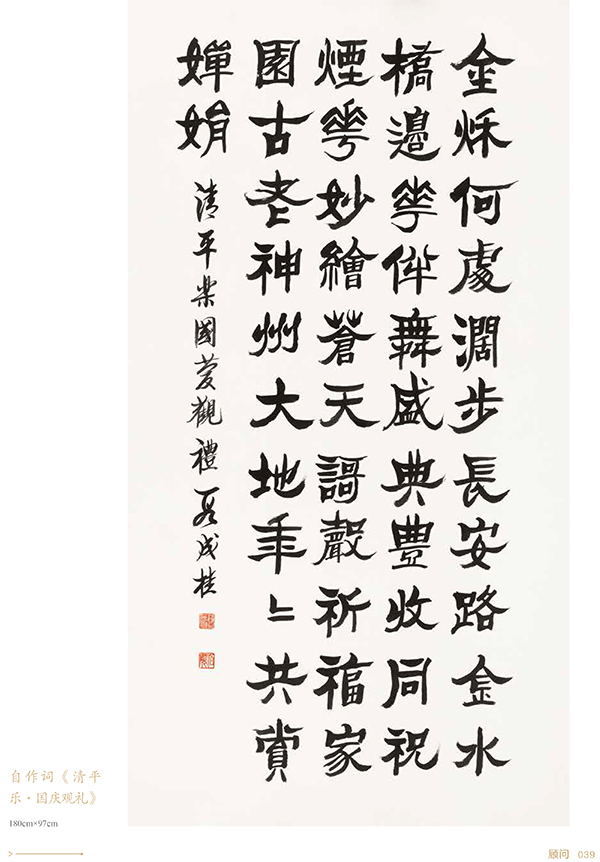 金秌何處濶步長安路金水
橋邊華伴舞盛典豐收同祝
煙華妙繪蒼天謌聲祈福家
園古老神州大地年〻共賞
嬋娟
清平樂國慶觀禮 段成桂
自作词《清平
乐·国庆观礼》
180cm×97cm
顾问 039